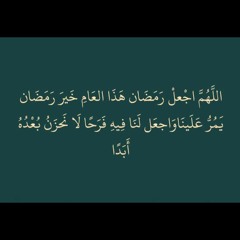 اللَّهُمَّ اجْعلْ رَمَضَان هَذَا العَامِ خَيرَ رَمَضَان
يَمُرُّ عَلَينَاوَاجعَل لَنَا فِيهِ فَرَحًا لَا نَحزَنُ بُعْدُهُ
أَبَدًا